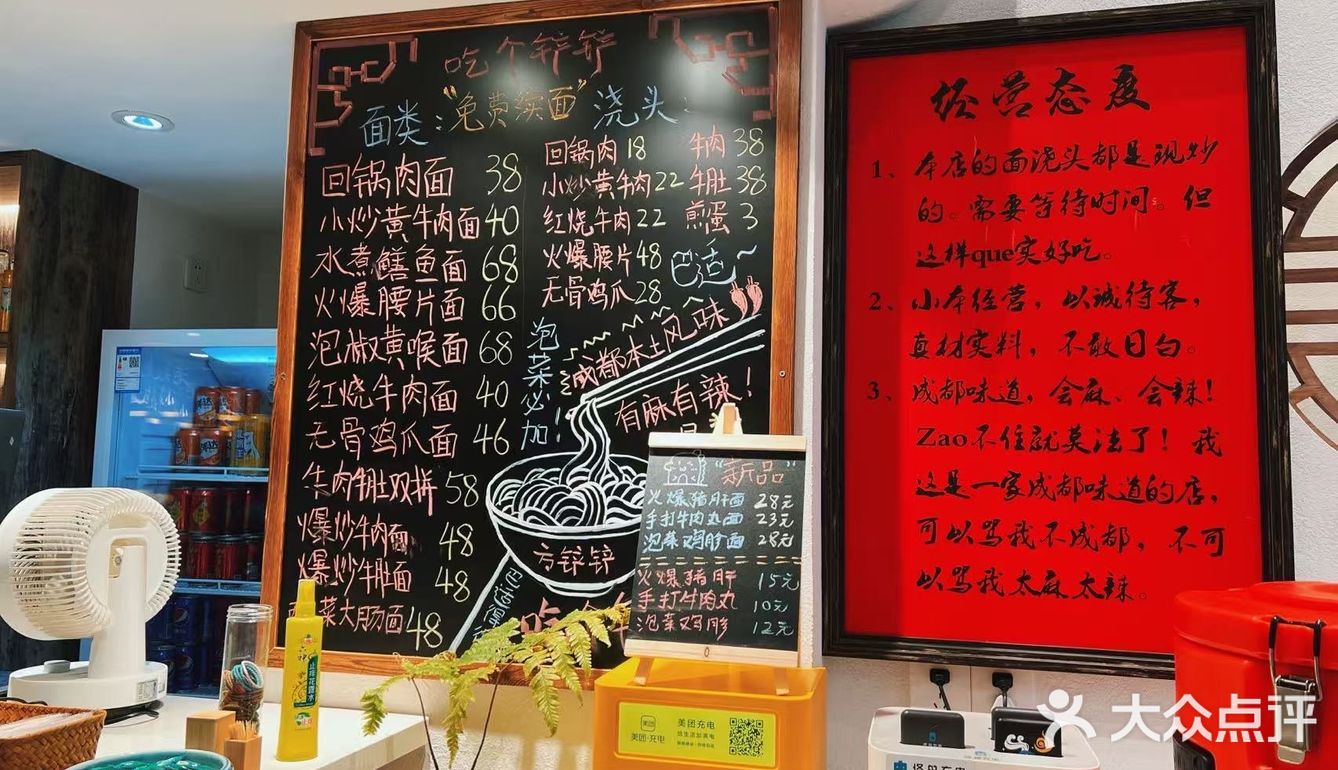 吃个铲铲
面类：“免费续面”浇头：
回锅肉面 38
小炒黄牛肉面 40
水煮鳝鱼面 68
火爆腰片面 66
泡椒黄喉面 68
红烧牛肉面 40
无骨鸡爪面 46
牛肉牛肚双拼 58
爆炒牛肉面 48
爆炒牛肚面 48
菜大肠面 48
回锅肉 18 牛肉 38
小炒黄牛肉 22 牛肚 38
红烧牛肉 22 煎蛋 3
火爆腰片 48
无骨鸡爪 28
巴适~
泡菜必加！
成都本土风味
有麻有辣！
方铲铲
吃
“新品”
火爆猪肝面 28元
手打牛肉丸面 23元
泡菜鸡胗面 28元
火爆猪肝 15元
手打牛肉丸 10元
泡菜鸡胗 12元
经营态度
1、本店的面浇头都是现炒
的。需要等待时间。但
这样que实好吃。
2、小本经营，以诚待客，
真材实料，不敢日白。
3、成都味道，会麻、会辣！
Zao不住就莫法了！我
这是一家成都味道的店，
可以骂我不成都，不可
以骂我太麻太辣。
美团
美团·充电
美团充电
大众点评